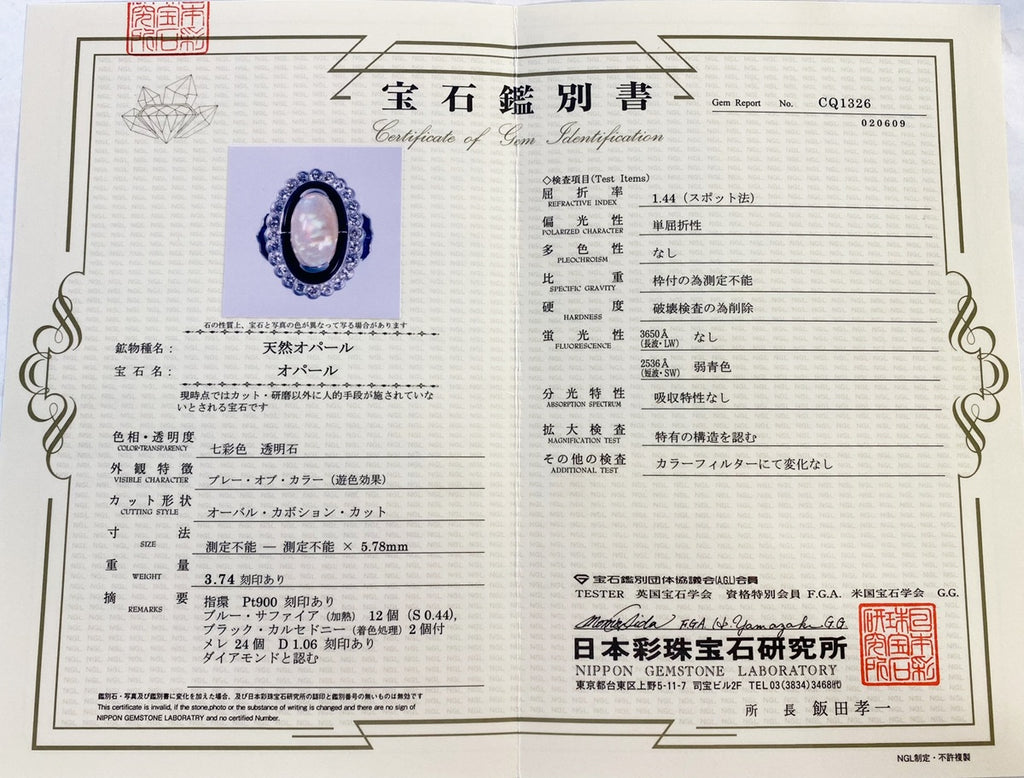 宝石鑑別書
Certificate of Gem Identification
Gem Report No. CQ1326
020609
石の性質上、宝石と写真の色が異なって写る場合があります
鉱物種名： 天然オパール
宝石名： オパール
現時点ではカット・研磨以外に人的手段が施されていな
いとされる宝石です
色相・透明度 七彩色 透明石
COLOR·TRANSPARENCY
外観特徴 プレー・オブ・カラー（遊色効果）
VISIBLE CHARACTER
カット形状 オーバル・カボション・カット
CUTTING STYLE
寸法 測定不能 — 測定不能 × 5.78mm
SIZE
重量 3.74 刻印あり
WEIGHT
摘要 指環 Pt900 刻印あり
REMARKS
ブルー・サファイア（加熱） 12個（S 0.44),
ブラック・カルセドニー（着色処理）2個付
メレ 24個 D1.06 刻印あり
ダイアモンドと認む
鑑別石・写真及び鑑別書に変化を加えた場合、及び日本彩珠宝石研究所の認印と鑑別番号の無いものは無効です
This certificate is invalid, if the stone,photo or the substance of writing is changed and there are no sign of
NIPPON GEMSTONE LABORATRY and no certified Number.
◇検査項目(Test Items)
屈折率 1.44（スポット法）
REFRACTIVE INDEX
偏光性 単屈折性
POLARIZED CHARACTER
多色性 なし
PLEOCHROISM
比重 枠付の為測定不能
SPECIFIC GRAVITY
硬度 破壊検査の為削除
HARDNESS
蛍光性 3650Å (長波・LW) なし
FLUORESCENCE
2536Å (短波・SW) 弱青色
分光特性 吸収特性なし
ABSORPTION SPECTRUM
拡大検査 特有の構造を認む
MAGNIFICATION TEST
その他の検査 カラーフィルターにて変化なし
ADDITIONAL TEST
宝石鑑別団体協議会(A.G.L)会員
TESTER 英国宝石学会 資格特別会員 F.G.A. 米国宝石学会 G.G.
F.G.A. Yamazaki G.G.
日本彩珠宝石研究所
NIPPON GEMSTONE LABORATORY
東京都台東区上野5-11-7 司宝ビル2F TEL03(3834)3468㈹
所長 飯田孝一
日本彩珠宝石研究所
NGL制定・不許複製